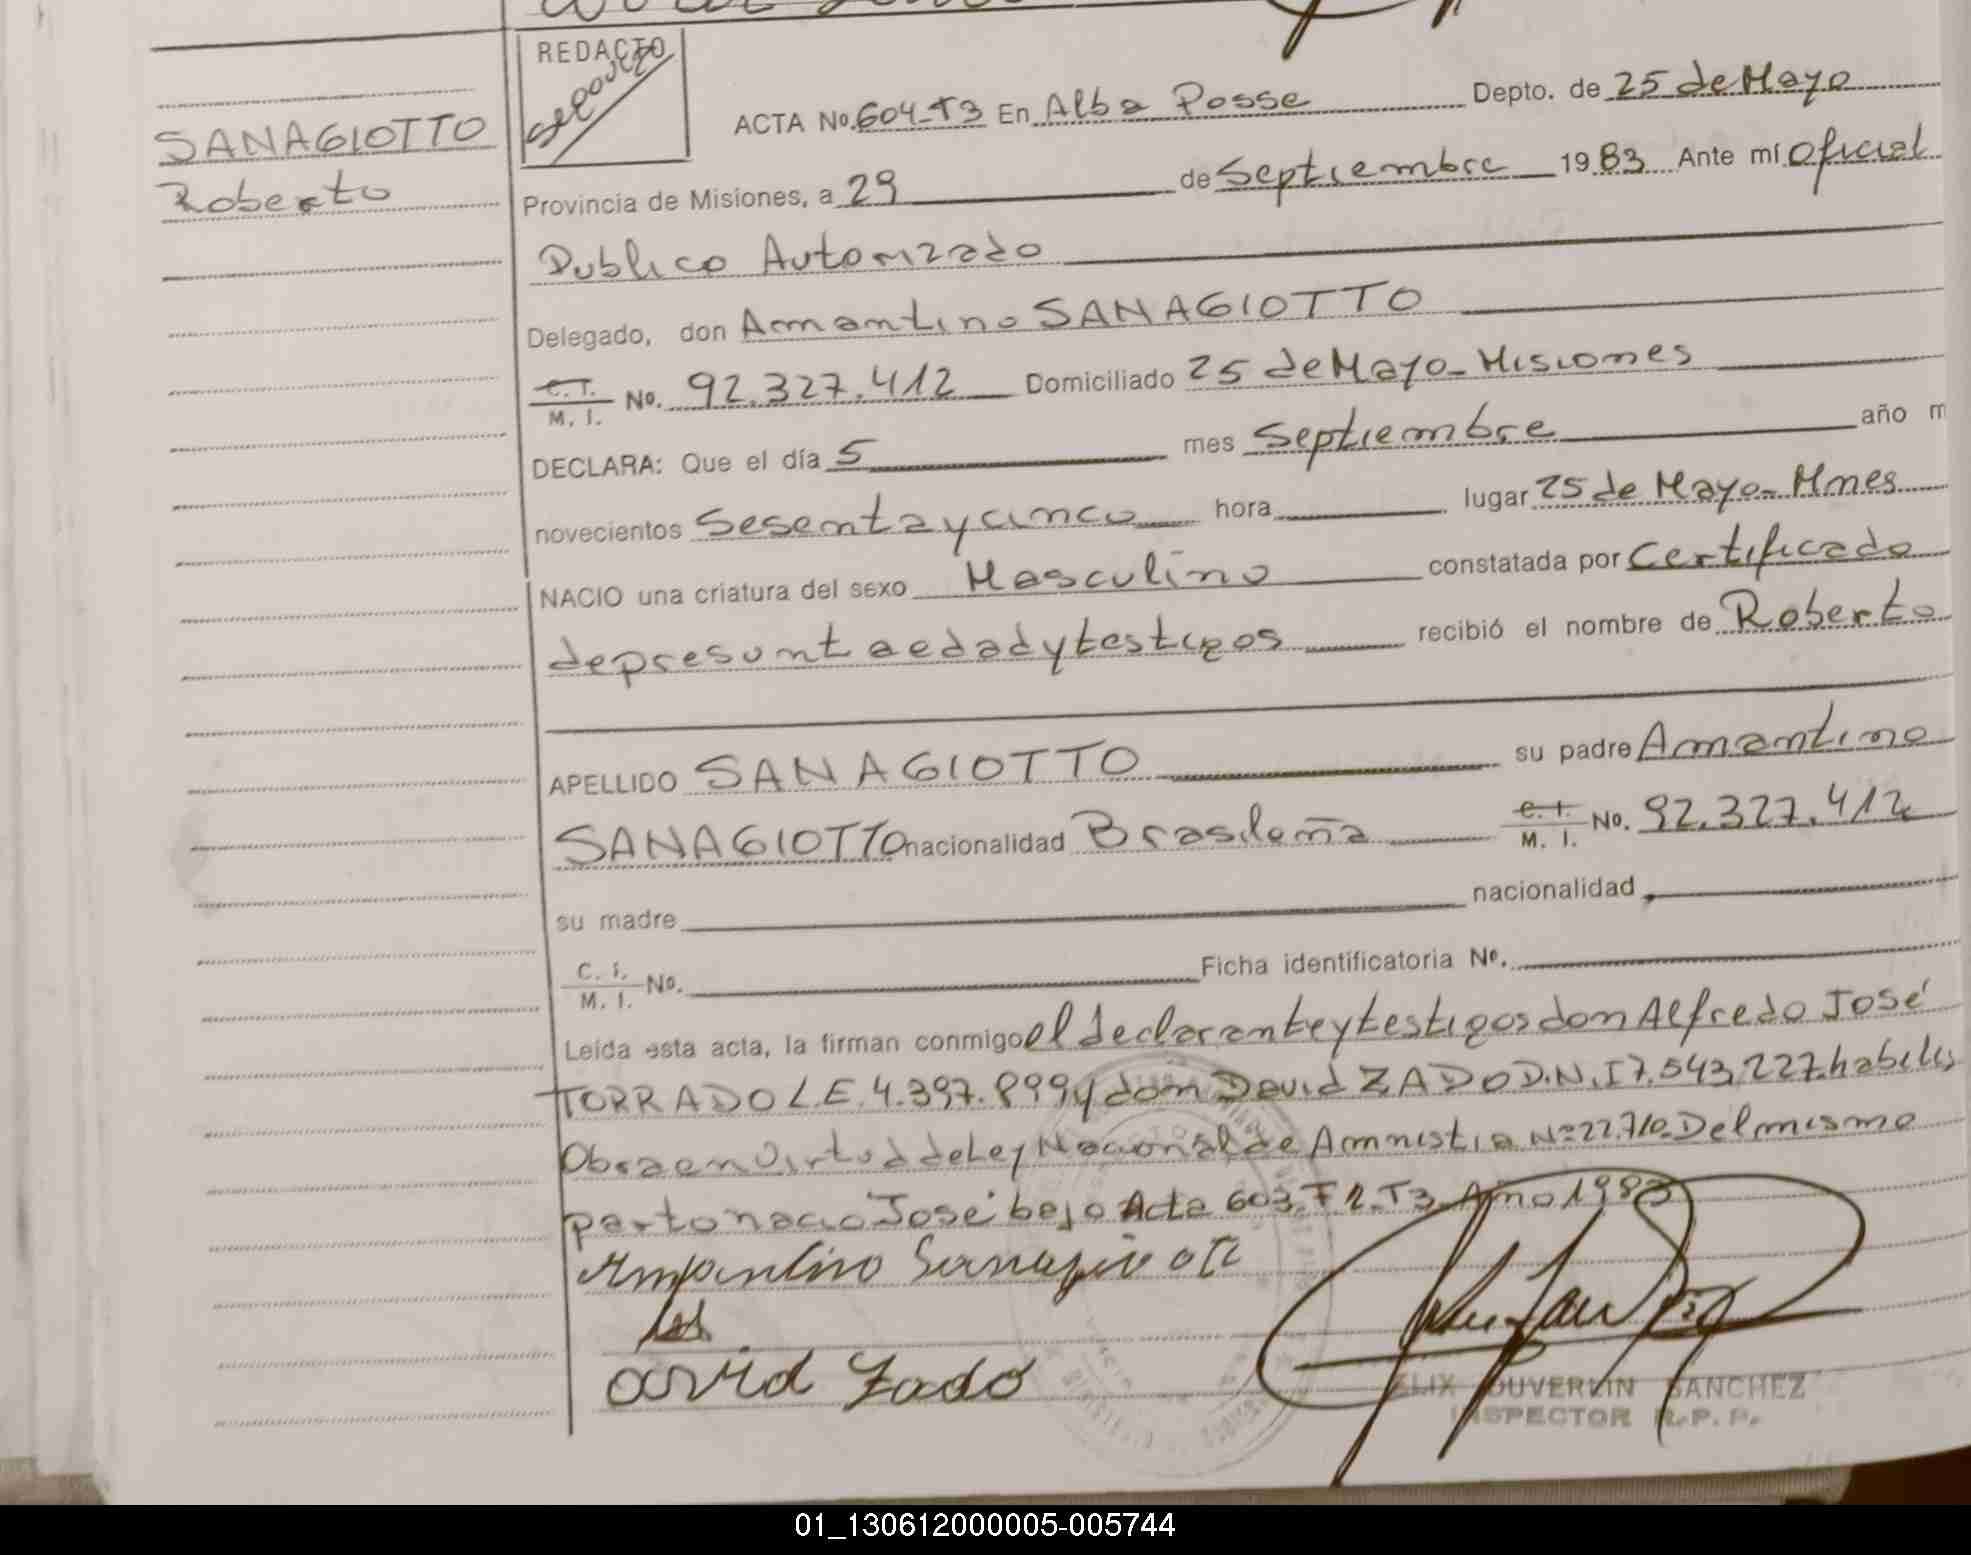 REDACTO
SANAGIOTTO
Roberto
ACTA No. 604-T3 En Alba Posse Depto. de 25 de Mayo
Provincia de Misiones, a 29 de Septiembre 1983 Ante mí Oficial
Publico Autorizado
Delegado, don Amantino SANAGIOTTO
C. I. M. I. No. 92.327.412 Domiciliado 25 de Mayo - Misiones
DECLARA: Que el día 5 mes Septiembre año m
novecientos Sesenta y cinco hora lugar 25 de Mayo - Mnes
NACIO una criatura del sexo Masculino constatada por Certificado
de presunta edad y testigos recibió el nombre de Roberto
APELLIDO SANAGIOTTO su padre Amantino
SANAGIOTTO nacionalidad Brasileña C. I. M. I. No. 92.327.412
su madre nacionalidad
C. I. M. I. No. Ficha identificatoria No.
Leída esta acta, la firman conmigo el declarante y testigos don Alfredo José
TORRADO L.E. 4.397.899 y don David ZADO D.N.I 7.543.227. habiles
Obra en Virtud de Ley Nacional de Amnistia Nº 22.710. Del mismo
parto nacio José bajo Acta 603. Fº 2. T3. Año 1983
Amantino Sanagiotto
David Zado
FELIX DUVERLIN SANCHEZ
INSPECTOR R. P. P.
01_130612000005-005744